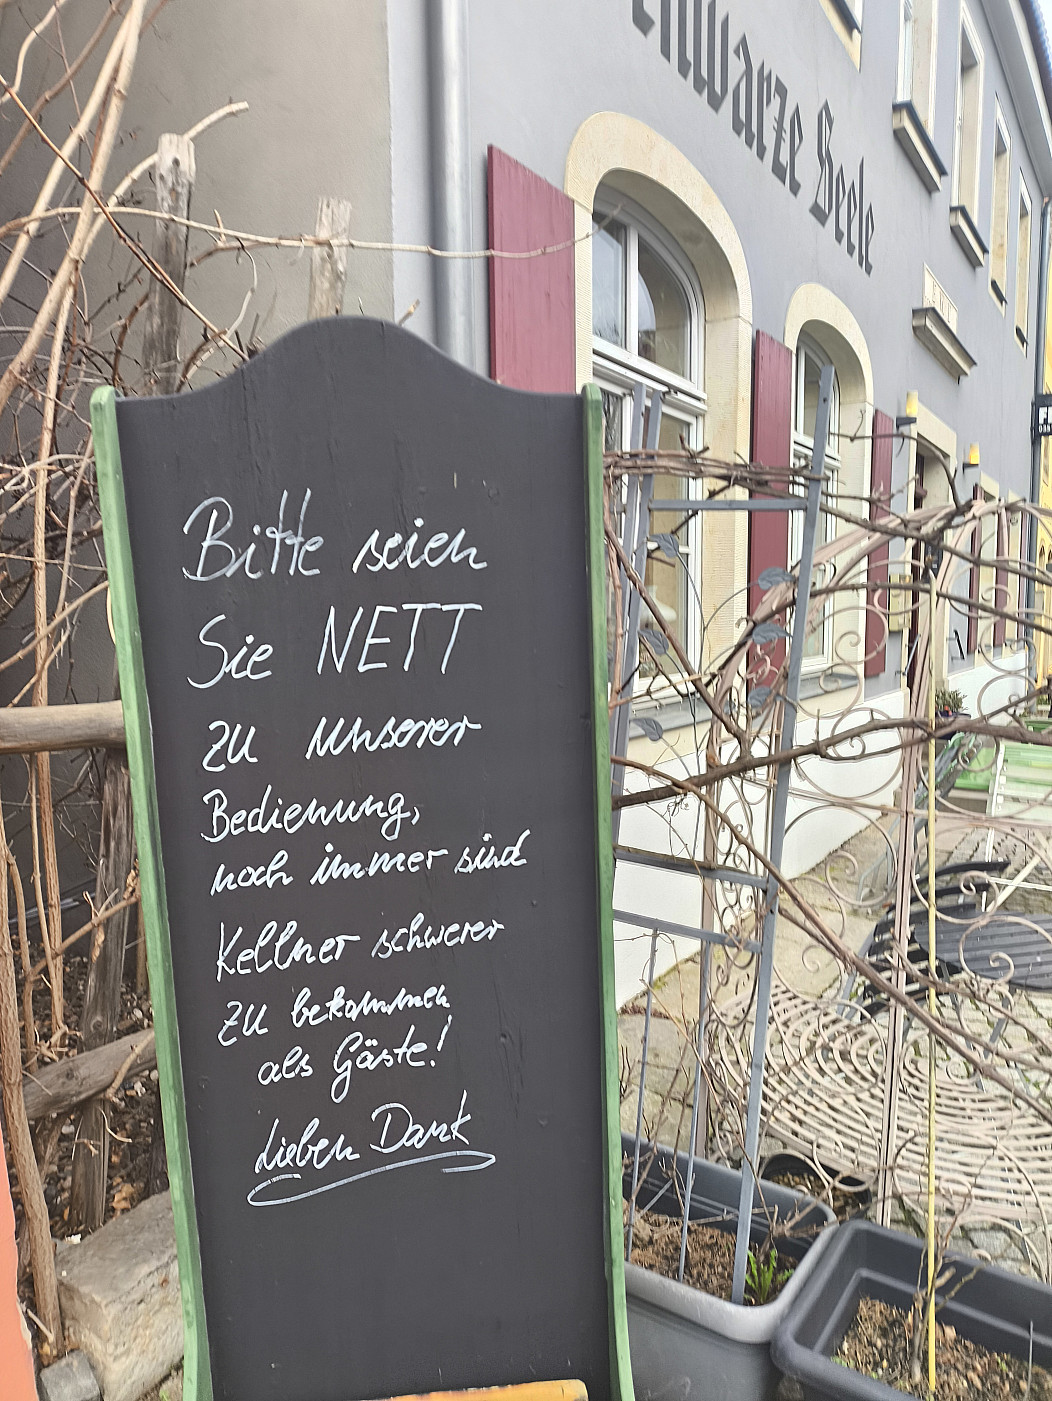 chwarze Seele
Bitte seien
Sie NETT
zu unserer
Bedienung,
noch immer sind
Kellner schwerer
zu bekommen
als Gäste!
Lieben Dank